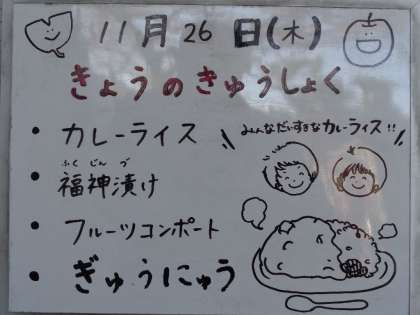 11月26日(木)
きょうのきゅうしょく
• カレーライス
みんなだいすきなカレーライス!!
ふくじんづ
• 福神漬け
• フルーツコンポート
• ぎゅうにゅう